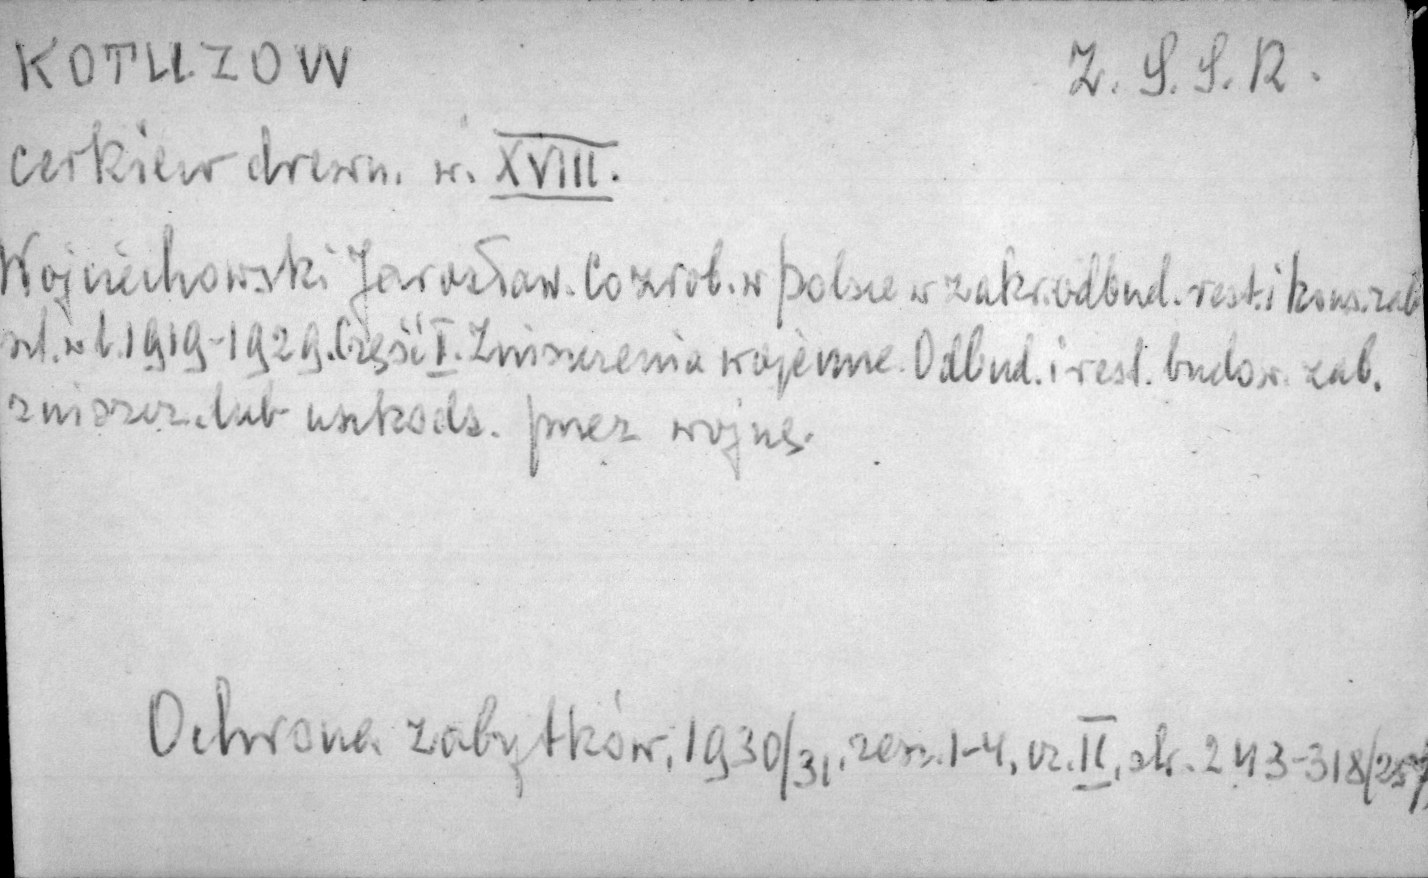 KOTUZOW Z.S.S.R.
cerkiew drewn. w. XVIII.
Wojciechowski Jarosław. Co zrob. w Polsce w zakr. odbud. rest. i kons. zab.
szt. w l. 1919-1929. Część I. Zniszczenia wojenne. Odbud. i rest. budow. zab.
zniszcz. lub uszkodz. przez wojnę.
Ochrona zabytków, 1930/31, zesz. 1-4, cz. II, str. 243-318/257/